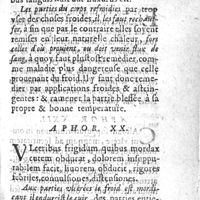 Les parties du corps refroidies par trop
vser des choses froides, il les faut rechauf-
fer, à fin que par le contraire elles soyent
remises en leur naturelle chaleur, sors
celles d'où prouient, ou doit venir flux de
sang, à quoy faut plustost remedier, com-
me maladie plus dangereuse que celle
prouenant du froid. Il y faut donc reme-
dier par applications froides & astrin-
gentes: & ramener la partie blessée à sa
propre & bonne temperature.
APHOR. XX.
Vlceribus frigidum quibus mordax
cutem obducat, dolorem insuppu-
rabilem facit, liuorem obducit, rigores
febriles, conuulsiones, distensiones.
Aux parties vlcerées le froid est mordi-
cant, il endurcist le cuir